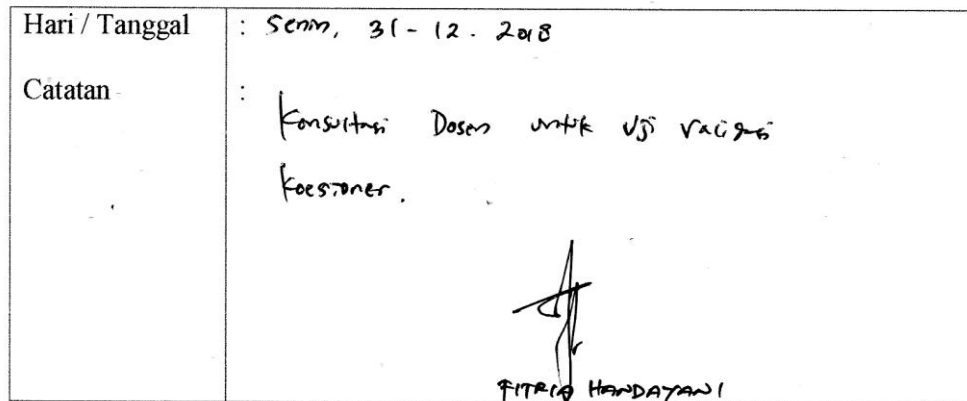 Hari / Tanggal : Senin, 31 - 12 - 2018
Catatan :
Konsultasi Dosen untuk Uji Validasi
Koesioner.
FITRIA HANDAYANI